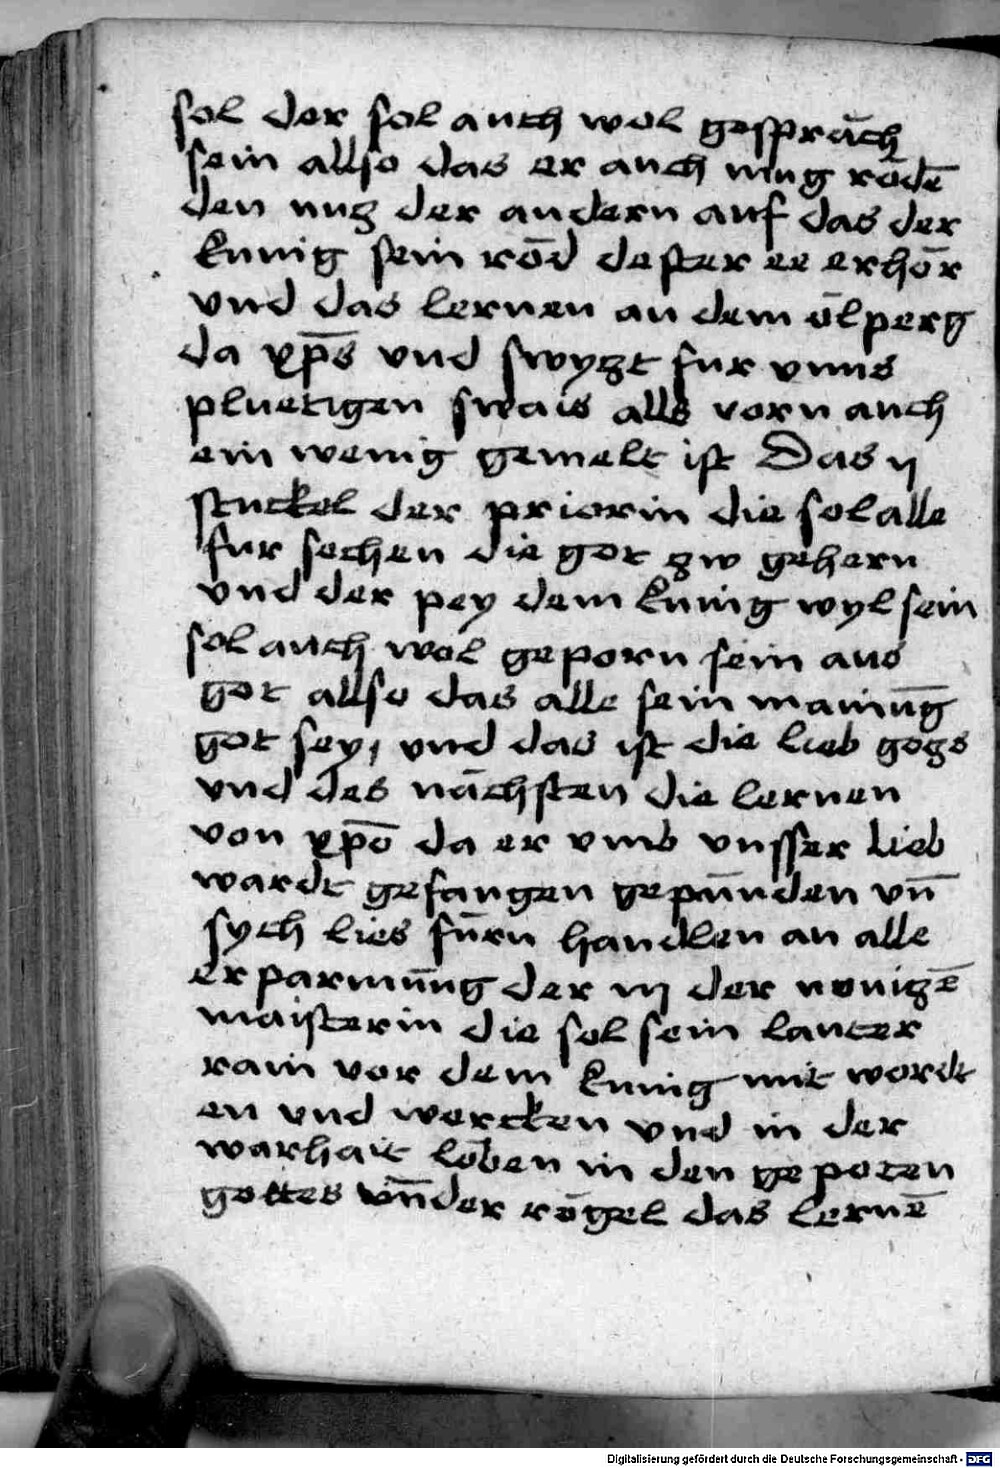 sol der sol auch wol gespräch
sein allso das er auch müg rödē
den nucz der andern auf das der
kunig sein röd dester ee erhör
vnd das lernen an dem ölperg
da xp̄s vnd swyzt fur vnns
pluetigen swais alls vorn auch
ein wenig gemelt ist Das ij
stuckel der priorin die sol alle
fur sechen die got zw gehern
vnd der pey dem kunig wyl sein
sol auch wol geporn sein aus
got allso das alle sein mainūg
got sey, vnd das ist die lieb gogs
vnd des nächsten die lernen
von xp̄o da er vmb vnsser lieb
wardt gefangen gepunden vn̄
sych lies fürn handlen an alle
erparmūng der iij der nouizē
maisterin die sol sein lauter
rain vor dem kunig mit wordt
en vnd wercken vnd in der
warhait löben in den gepoten
gottes vn̄ der rögel das lernē
Digitalisierung gefördert durch die Deutsche Forschungsgemeinschaft - DFG